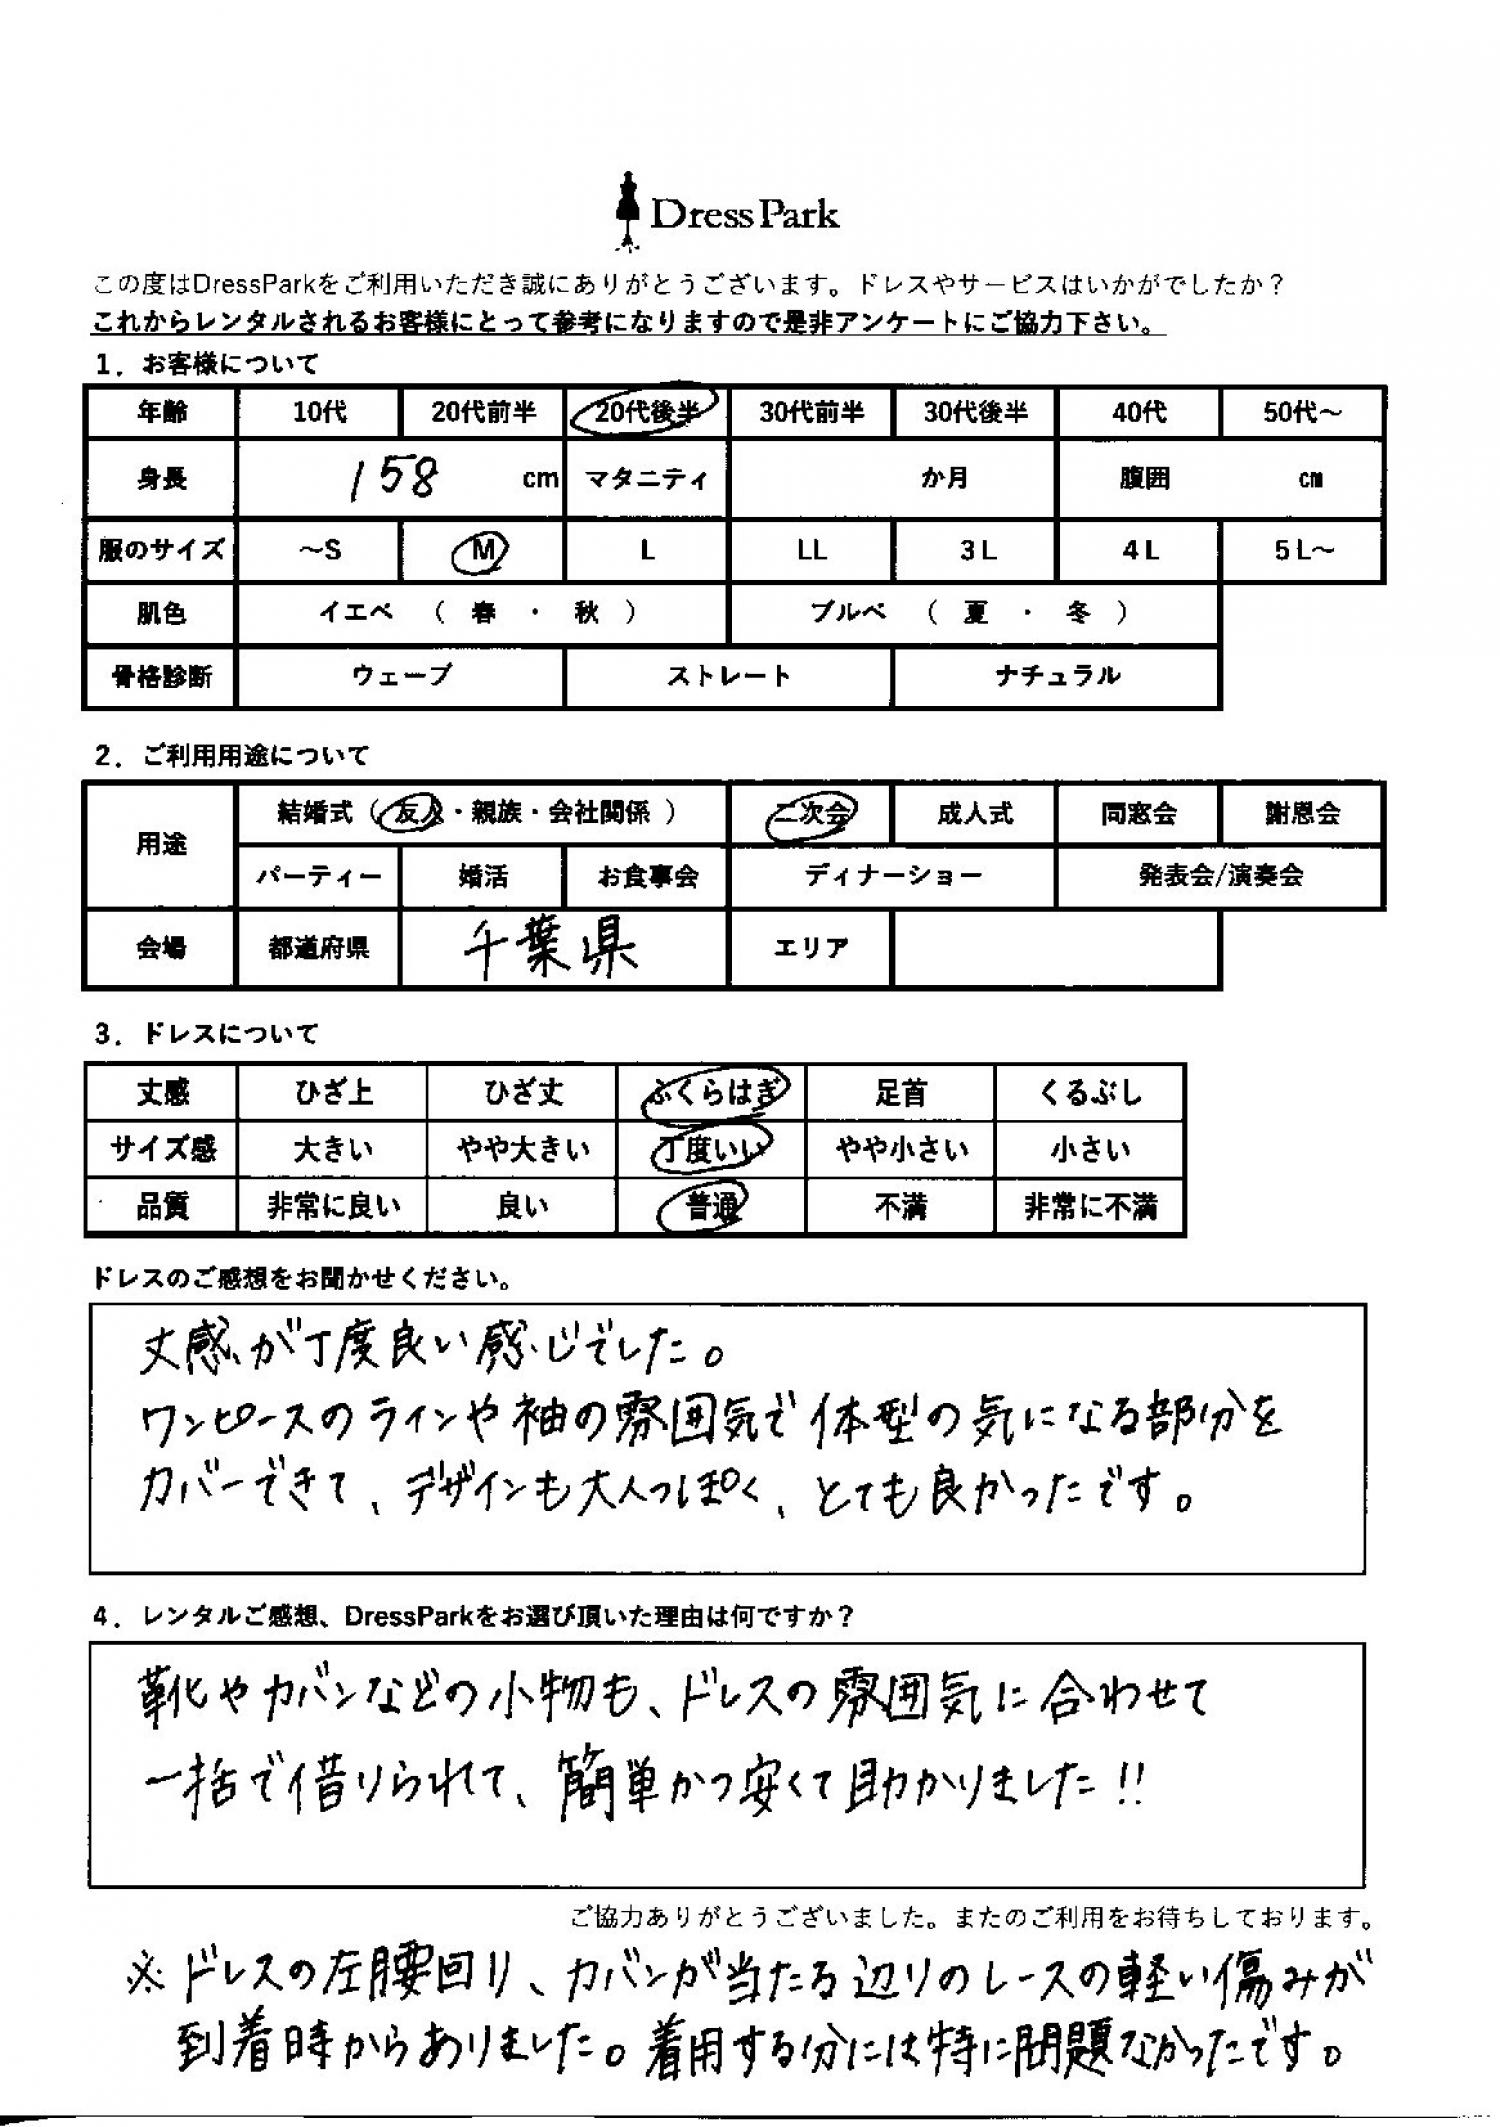 DressPark
この度はDressParkをご利用いただき誠にありがとうございます。ドレスやサービスはいかがでしたか？
これからレンタルされるお客様にとって参考になりますので是非アンケートにご協力下さい。
1．お客様について
年齢 10代 20代前半 20代後半 30代前半 30代後半 40代 50代〜
身長 158 cm マタニティ か月 腹囲 ㎝
服のサイズ 〜S M L LL 3L 4L 5L〜
肌色 イエベ （ 春 ・ 秋 ） ブルベ （ 夏 ・ 冬 ）
骨格診断 ウェーブ ストレート ナチュラル
2．ご利用用途について
用途 結婚式（ 友人・親族・会社関係 ） 二次会 成人式 同窓会 謝恩会
パーティー 婚活 お食事会 ディナーショー 発表会/演奏会
会場 都道府県 千葉県 エリア
3．ドレスについて
丈感 ひざ上 ひざ丈 ふくらはぎ 足首 くるぶし
サイズ感 大きい やや大きい 丁度いい やや小さい 小さい
品質 非常に良い 良い 普通 不満 非常に不満
ドレスのご感想をお聞かせください。
丈感が丁度良い感じでした。
ワンピースのラインや袖の雰囲気で体型の気になる部分を
カバーできて、デザインも大人っぽく、とても良かったです。
4．レンタルご感想、DressParkをお選び頂いた理由は何ですか？
靴やカバンなどの小物も、ドレスの雰囲気に合わせて
一括で借りられて、簡単かつ安くて助かりました!!
ご協力ありがとうございました。またのご利用をお待ちしております。
※ドレスの左腰回り、カバンが当たる辺りのレースの軽い傷みが
到着時からありました。着用する分には特に問題なかったです。